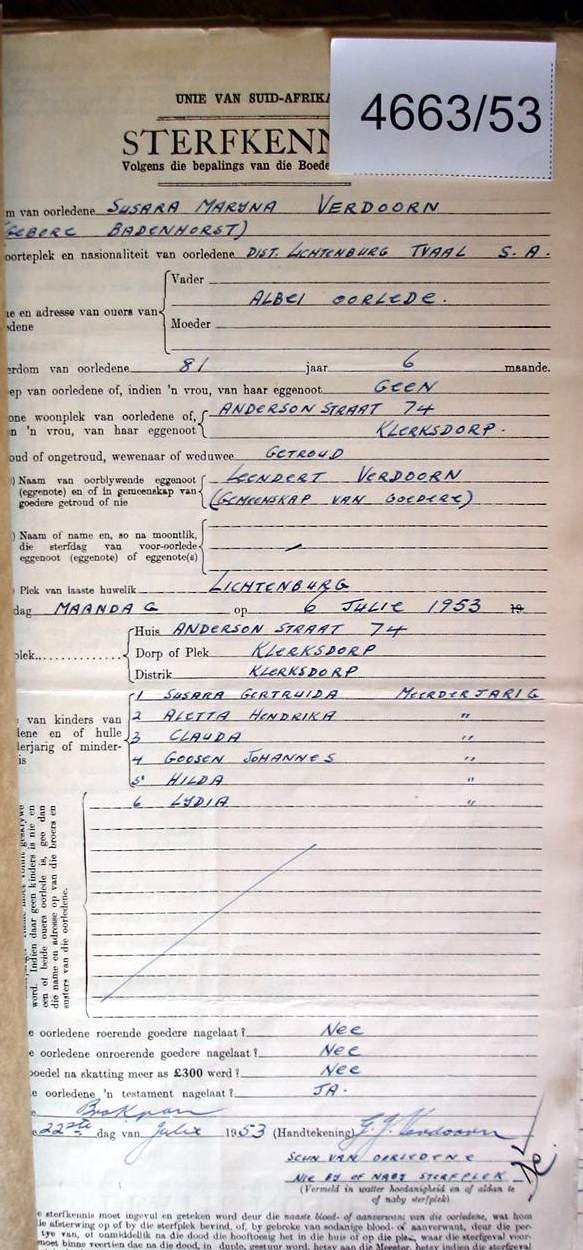 4663/53
UNIE VAN SUID-AFRIKA
STERFKENN
Volgens die bepalings van die Boede
m van oorledene SUSARA MARYNA VERDOORN
(GEBORE BADENHORST)
oorteplek en nasionaliteit van oorledene DIST. LICHTENBURG TVAAL S.A.
Vader
ne en adresse van ouers van ALBEI OORLEDE.
dene
Moeder
erdom van oorledene 81 jaar 6 maande.
ep van oorledene of, indien 'n vrou, van haar eggenoot GEEN
one woonplek van oorledene of, ANDERSON STRAAT 74
n 'n vrou, van haar eggenoot KLERKSDORP.
oud of ongetroud, wewenaar of weduwee GETROUD
) Naam van oorblywende eggenoot LEENDERT VERDOORN
(eggenote) en of in gemeenskap van (GEMEENSKAP VAN GOEDERE)
goedere getroud of nie
) Naam of name en, so na moontlik,
die sterfdag van voor-oorlede
eggenoot (eggenote) of eggenote(s)
Plek van laaste huwelik LICHTENBURG
dag MAANDAG op 6 JULIE 1953 19
Huis ANDERSON STRAAT 74
plek Dorp of Plek KLERKSDORP
Distrik KLERKSDORP
1 SUSARA GERTRUIDA MEERDERJARIG
van kinders van 2 ALETTA HENDRIKA "
lene en of hulle 3 CLAUDA "
lerjarig of minder- 4 GOOSEN JOHANNES "
is 5 HILDA "
6 LYDIA "
word. Indien daar geen kinders is nie en
een of beide ouers oorlede is, gee dan
die name en adresse op van die broers en
susters van die oorledene.
e oorledene roerende goedere nagelaat? NEE
e oorledene onroerende goedere nagelaat? NEE
boedel na skatting meer as £300 werd? NEE
e oorledene 'n testament nagelaat? JA.
e Brakpan
e 22ste dag van Julie 1953 (Handtekening) G. J. Verdoorn
SEUN VAN OORLEDENE
NIE BY OF NABY STERFPLEK
(Vermeld in watter hoedanigheid en of aldan te
of naby sterfplek)
e sterfkennis moet ingevul en geteken word deur die naaste bloed- of aanverwant van die oorledene, wat hom
ie afsterwing op of by die sterfplek bevind, of, by gebreke van sodanige bloed- of aanverwant, deur die per-
tye van, of onmiddellik na die dood die hooftoesig het in die huis of op die plek, waar die sterfgeval voor-
moet binne veertien dae na die dood, in duplo, gestuur word, hetsy aan die Meester, hetsy indien die sterfgeval